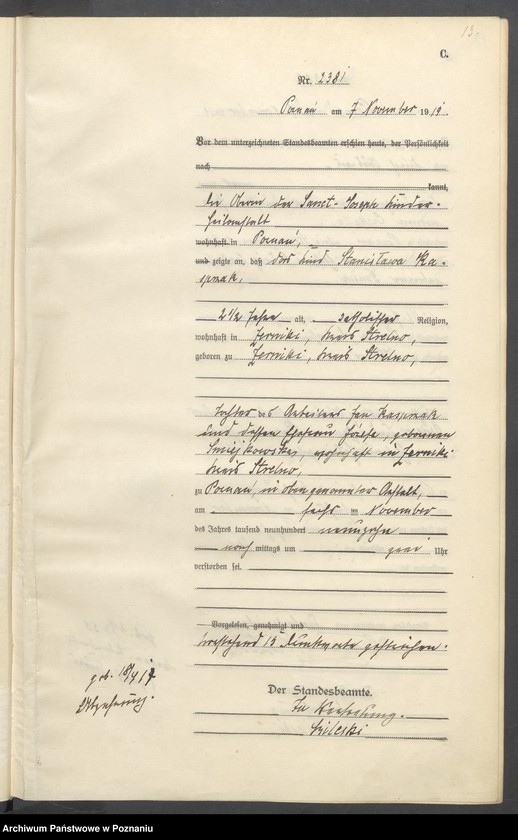 13.
C.
Nr. 2381
Poznań am 7 November 1919.
Vor dem unterzeichneten Standesbeamten erschien heute, der Persönlichkeit
nach
kannt,
die Oberin der Sanct-Joseph Kinder-
heilanstalt
wohnhaft in Poznań,
und zeigte an, daß das Kind Stanisława Ka-
spzak,
2 1/2 Jahre alt, katholischer Religion,
wohnhaft in Zerniki, Kreis Strelno,
geboren zu Zerniki, Kreis Strelno,
Tochter des Arbeiters Jan Kaspzak
und dessen Ehefrau Józefa, geborenen
wohnhaft in Zerniki
Kreis Strelno,
zu Poznań, in obengenannter Anstalt,
am sechs ten November
des Jahres tausend neunhundert neunzehn
nach mittags um zwei Uhr
verstorben sei.
Vorgelesen, genehmigt und
Vorstehend 13 Druckworte gestrichen.
geb. 18/4 17
Abzehrung.
Der Standesbeamte.
In Vertretung.
Archiwum Państwowe w Poznaniu